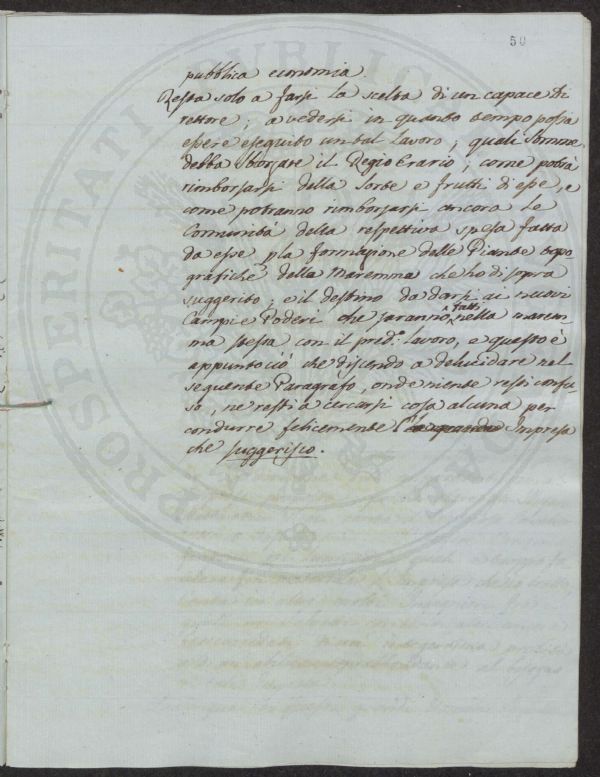 50
pubblica economia.
Resta solo a farsi la scelta di un capace Di
rettore; a vedersi in quanto tempo possa
essere eseguito un tal lavoro; quali somme
debba sborsare il Regio Erario; come potrà
rimborsarsi della sorte e frutti di esse, e
come potranno rimborsarsi ancora le
Comunità della respettiva spesa fatta
da esse p la formazione delle Piante topo-
grafiche della Maremma che ho di sopra
suggerito; e il destino da darsi ai nuovi
Campi e Poderi che saranno fatti nella marem
ma stessa con il pred.º lavoro, e questo è
appunto ciò che discendo a delucidare nel
seguente Paragrafo, onde niente resti confu-
so, ne resti a cercarsi cosa alcuna per
condurre felicemente l'Impresa
che suggerisco.
PROSPERITATI PUBLICAE